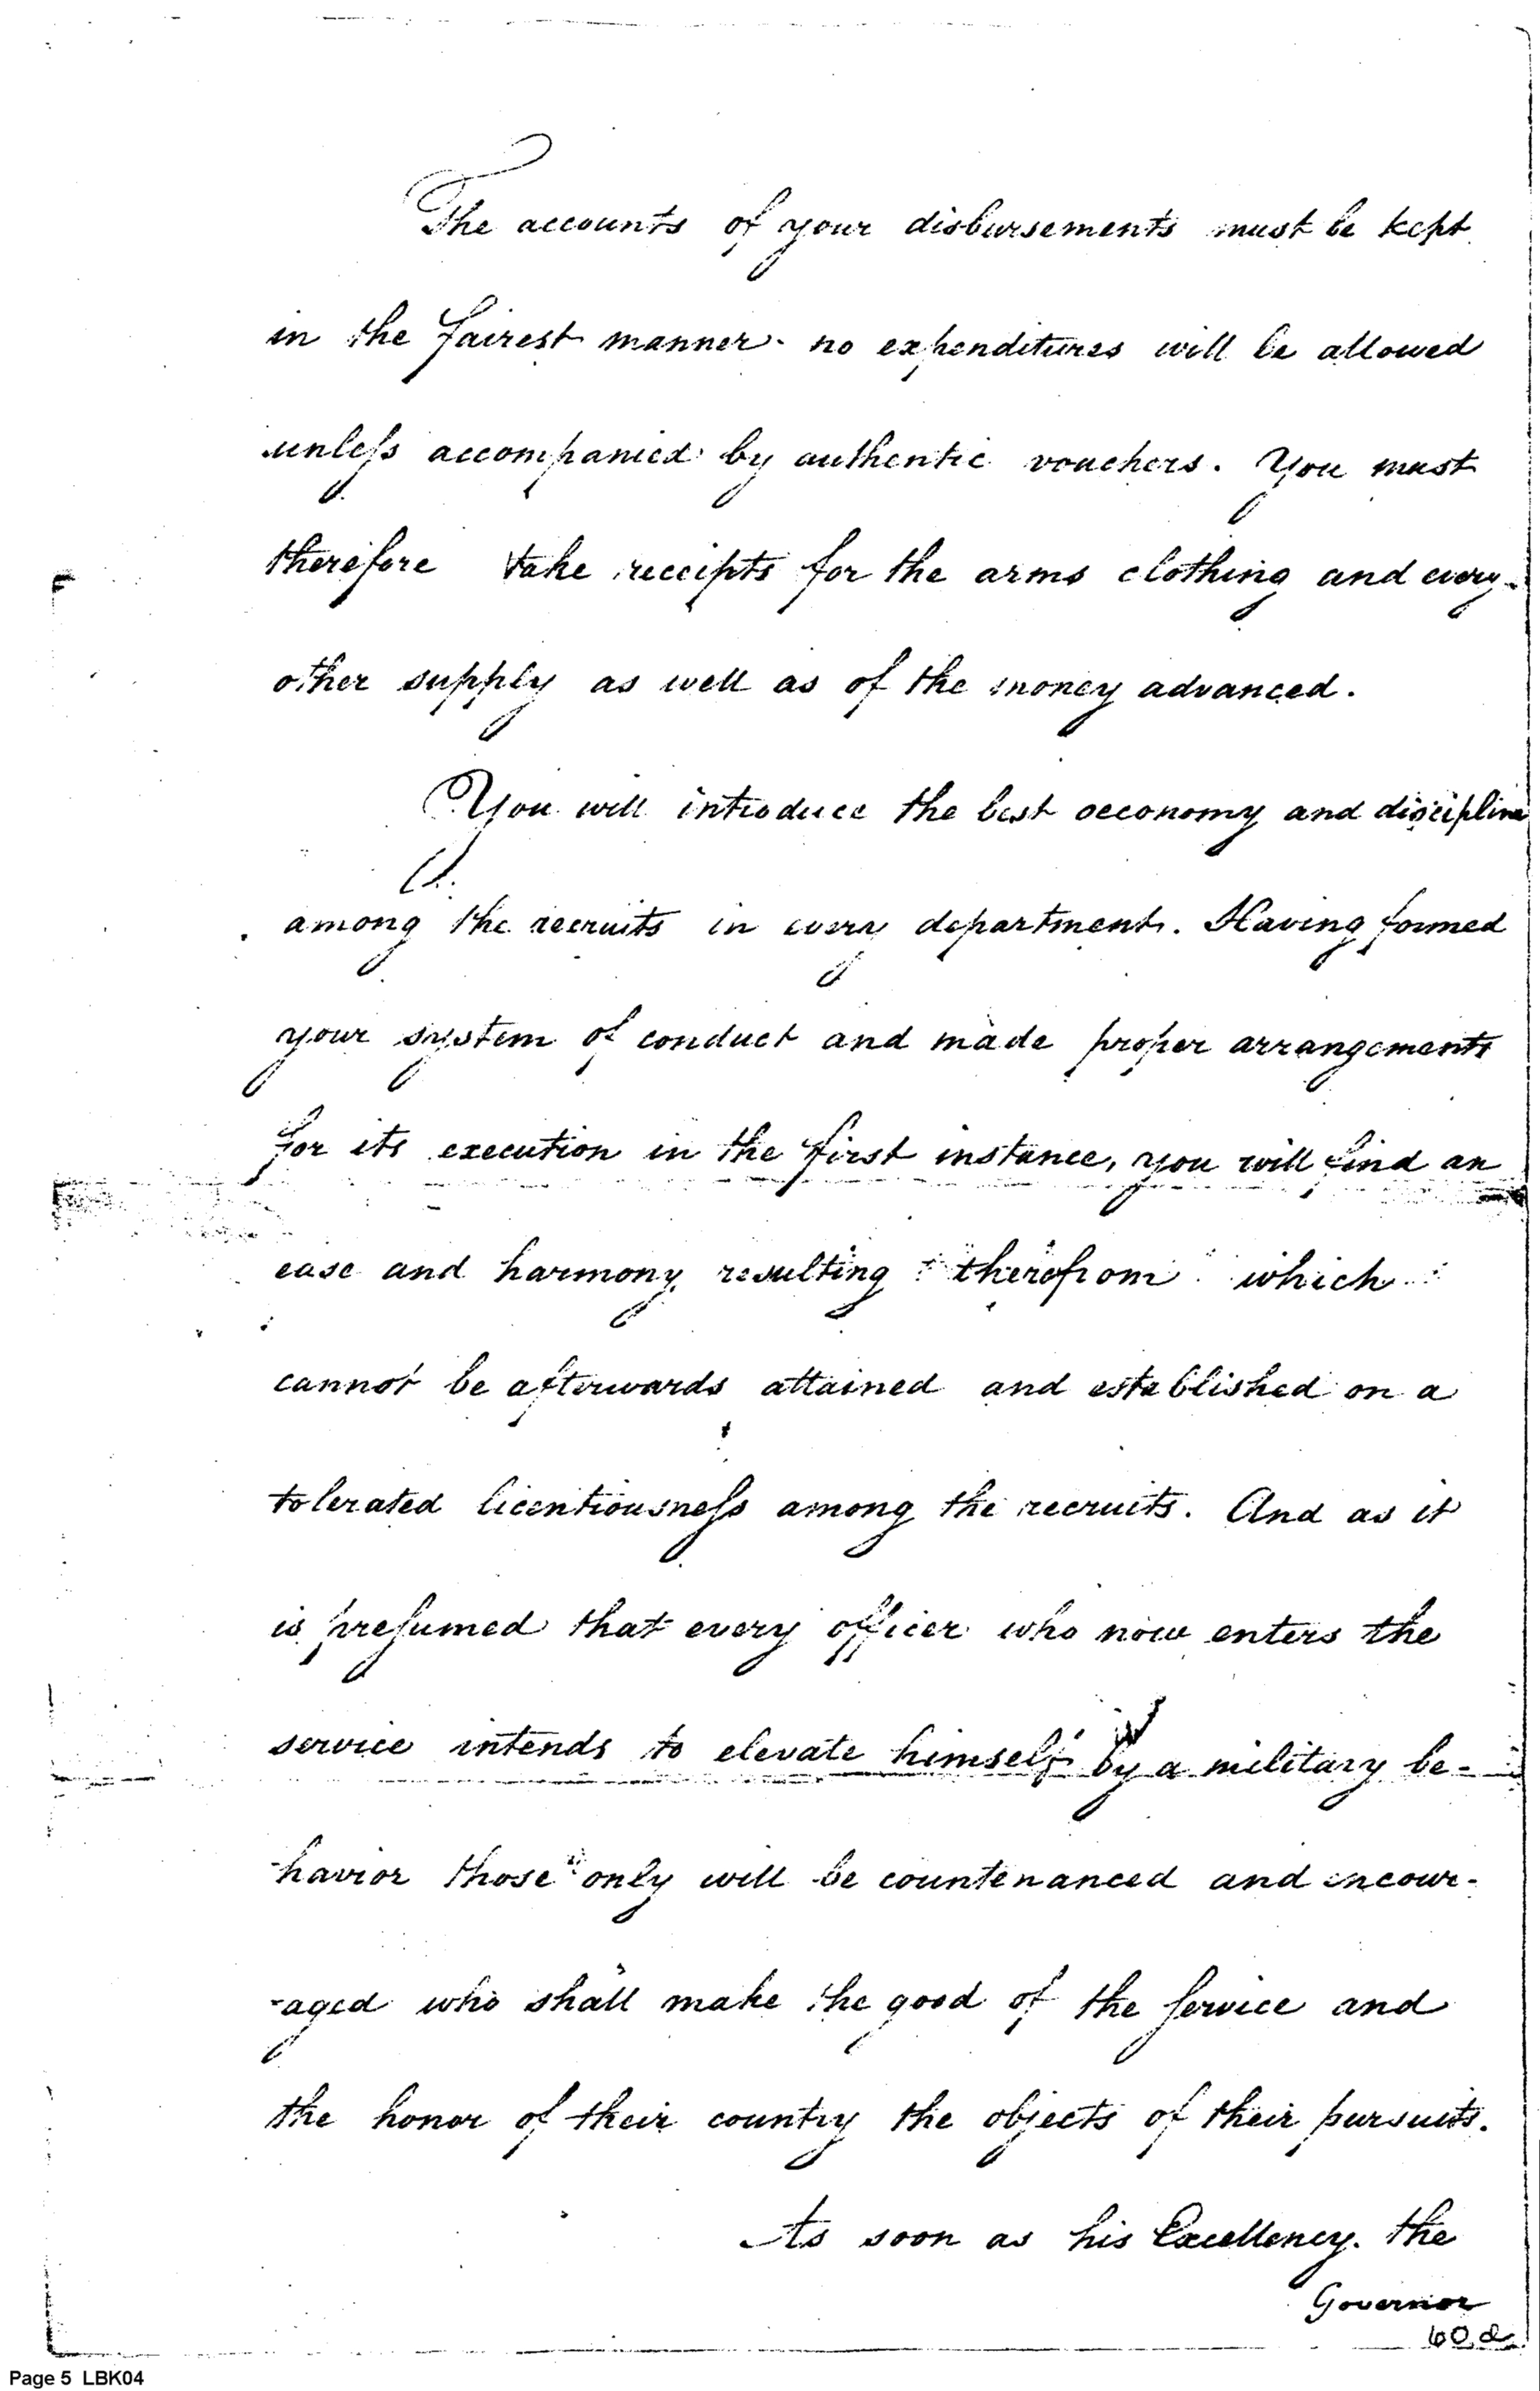 The accounts of your disbursements must be kept
in the fairest manner - no expenditures will be allowed
unless accompanied by authentic vouchers. You must
therefore take receipts for the arms clothing and every
other supply as well as of the money advanced.
You will introduce the best oeconomy and discipline
among the recruits in every department. Having formed
your system of conduct and made proper arrangements
for its execution in the first instance, you will find an
ease and harmony resulting therefrom which
cannot be afterwards attained and established on a
tolerated licentiousness among the recruits. And as it
is presumed that every officer who now enters the
service intends to elevate himself by a military be-
-havior those only will be countenanced and encour-
-aged who shall make the good of the service and
the honor of their country the objects of their pursuits.
As soon as his Excellency. the
Governor
60. d
Page 5 LBK04